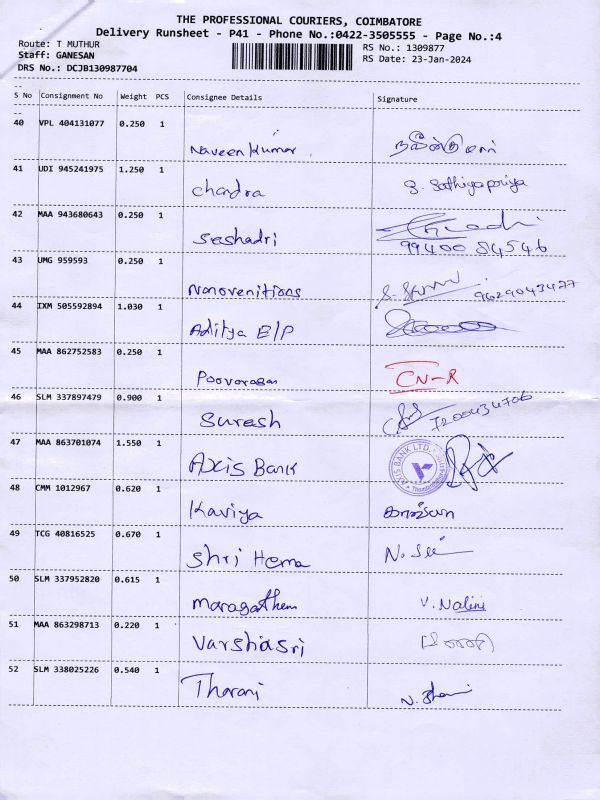 THE PROFESSIONAL COURIERS, COIMBATORE
Delivery Runsheet - P41 - Phone No.:0422-3505555 - Page No.:4
Route: T MUTHUR RS No.: 1309877
Staff: GANESAN RS Date: 23-Jan-2024
DRS No.: DCJB130987704
S No Consignment No Weight PCS Consignee Details Signature
40 VPL 404131077 0.250 1 Naveen Kumar நவீன்குமார்
41 UDI 945241975 1.250 1 Chandra S. Sathiyapriya
42 MAA 943680643 0.250 1 Seshadri
99400 84546
43 UMG 959593 0.250 1 Nanovenitions 9629043477
44 IXM 505592894 1.030 1 Aditya E/P
45 MAA 862752583 0.250 1 Poovarasan CN-R
46 SLM 337897479 0.900 1 Suresh 7200434706
47 MAA 863701074 1.550 1 Axis Bank AXIS BANK LTD.
48 CMM 1012967 0.620 1 Kaviya காவியா
49 TCG 40816525 0.670 1 Shri Hema
50 SLM 337952820 0.615 1 Maragathem V. Nalini
51 MAA 863298713 0.220 1 Varshasri
52 SLM 338025226 0.540 1 Tharani